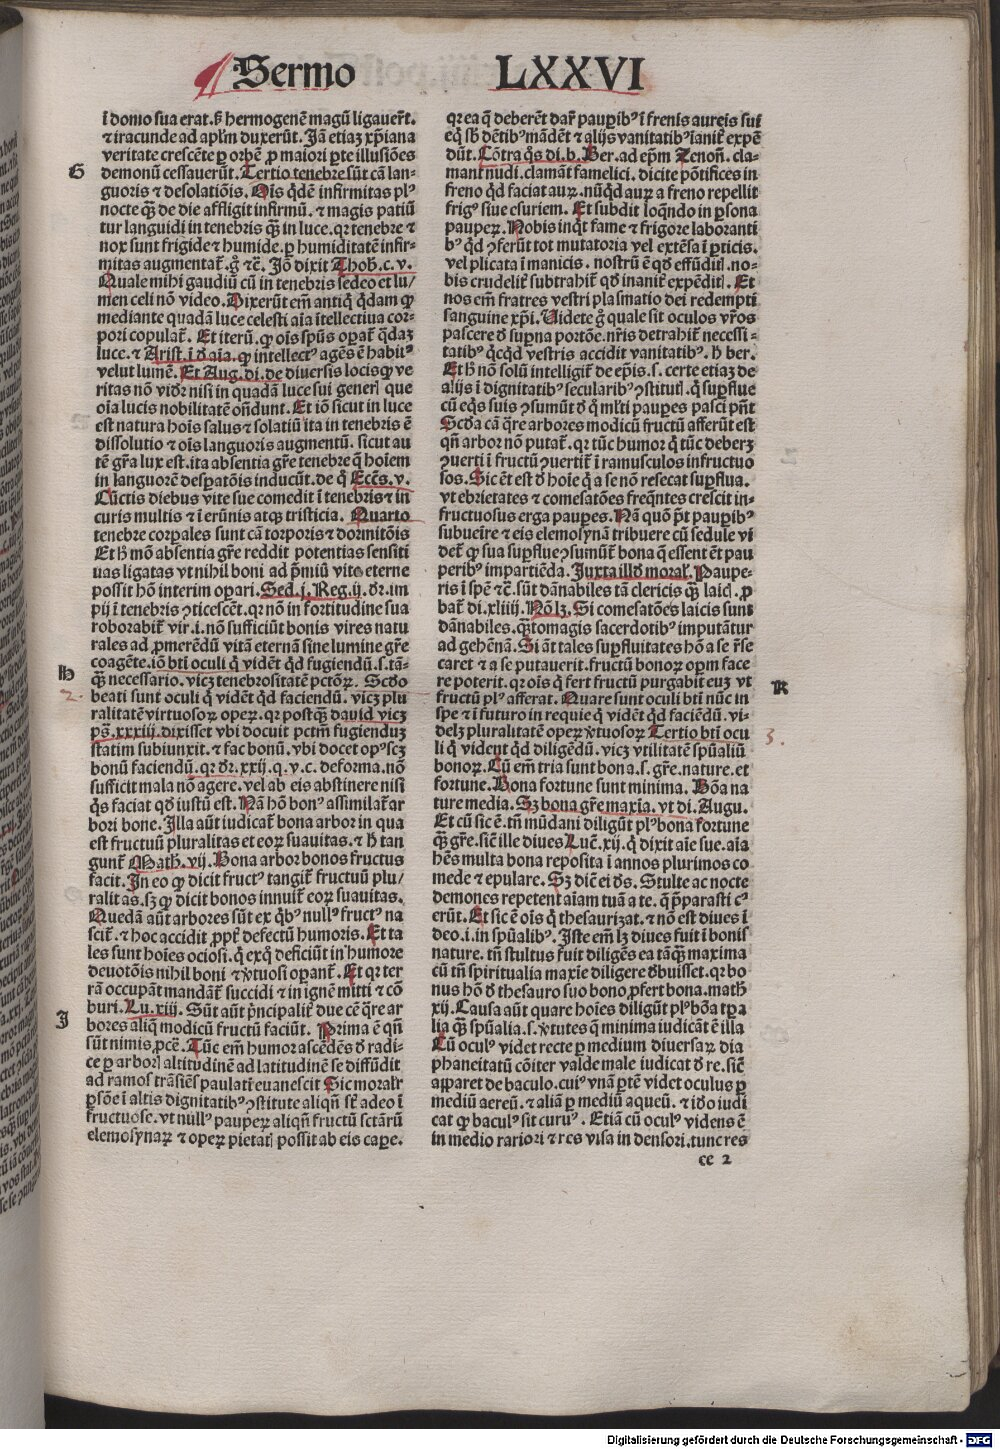 Sermo LXXVI
ī domo sua erat. ſꝫ hermogenē magū ligauer̄t.
⁊ iracunde ad apl̄m duxerūt. Jā etiaz xp̄iana
veritate creſcēte ꝑ orbē ꝓ maiori ꝑte illuſiōes
G
demonū ceſſauerūt. Tertio tenebre ſūt cā lan-
guoris ⁊ deſolatiōis. Oīs qͥdē infirmitas plꝰ
nocte qꝫ̄ de die affligit infirmū. ⁊ magis patiū
tur languidi in tenebris qꝫ̄ in luce. qꝛ tenebre ⁊
nox ſunt frigide ⁊ humide. ꝑ humiditatē infir-
mitas augmentat̄. gͦ ⁊c̄. Jō dixit Thob. c. v.
Quale mihi gaudiū cū in tenebris ſedeo et lu/
men celi nō video. Dixerūt em̄ antiqͥ qͥdam ꝙ
mediante quadā luce celeſti aīa ītellectiua cor-
pori copulat̄. Et iterū. ꝙ oīs ſpūs oꝑat̄ qͣdaz
luce. ⁊ Ariſt. ī d̓ aīa. ꝙ intellectꝰ agēs ē habitꝰ
velut lumē. Et Aug. di. de diuerſis locis ꝙ ve
ritas nō vid̓r niſi in quadā luce ſui generꝭ que
oīa lucis nobilitatē oñdunt. Et iō ſicut in luce
eſt natura hoīs ſalus ⁊ ſolatiū ita in tenebris ē
diſſolutio ⁊ oīs languoris augmentū. ſicut au
tē gr̄a lux eſt. ita abſentia gr̄e tenebre qͥ hoīem
in languorē deſꝑatōis inducūt. de qͥ Eccēs. v.
Cūctis diebus vite ſue comedit ī tenebris ⁊ in
curis multis ⁊ ī erūnis atqꝫ triſticia. Quarto
tenebre corꝑales ſunt cā torporis ⁊ dormitōis
Et h̓ mō abſentia gr̄e reddit potentias ſenſiti
uas ligatas vt nihil boni ad p̄miū vite eterne
poſſit hōn interim oꝑari. Sed. j. Reg. ij. d̓r. im
pij ī tenebris ꝯticeſcēt. qꝛ nō in fortitudine ſua
roborabit̄ vir. i. nō ſufficiūt bonis vires natu
rales ad ꝓmerēdū vitā eternā ſine lumine gr̄e
coagēte. iō bt̄i oculi qͥ vidēt qd̓ fugiendū. ſ. tā-
H
qꝫ̄ neceſſario. vicꝫ tenebroſitatē pctōꝝ. Scd̓o
2.
beati ſunt oculi qͥ vidēt qd̓ faciendū. vicꝫ plu
ralitatē virtuoſoꝝ oꝑeꝝ. qꝛ poſtqꝫ̄ dauid vicꝫ
pſ̄. xxxiij. dixiſſet vbi docuit pctm̄ fugienduꝫ
ſtatim ſubiunxit. ⁊ fac bonū. vbi docet opꝰ ſcꝫ
bonū faciendū. qꝛ d̓r. xxij. q. v. c. deforma. nō
ſufficit mala nō agere. vel ab eis abſtinere niſi
qͥs faciat qd̓ iuſtū eſt. Nā hō bonꝰ aſſimilat̄ ar
bori bone. Illa aūt iudicat̄ bona arbor in qua
eſt fructuū pluralitas et eoꝝ ſuauitas. ⁊ h̓ tan
gunt̄ Math. vij. Bona arbor bonos fructus
facit. In eo ꝙ dicit fructꝰ tangit̄ fructuū plu/
ralitas. ſꝫ ꝙ dicit bonos innuit̄ eoꝝ ſuauitas.
Quedā aūt arbores ſūt ex qͥbꝰ nullꝰ fructꝰ na
ſcit̄. ⁊ hoc accidit ꝓpt̄ defectū humoris. Et ta
les ſunt hoīes ocioſi. qͥ exqͦ deficiūt in humore
deuotōis nihil boni ⁊ v̓tuoſi oꝑant̄. Et qꝛ ter
rā occupāt mandāt̄ ſuccidi ⁊ in ignē mitti ⁊ cō
buri. Lu. xiij. Sūt aūt p̄ncipalit̓ due cē qͣre ar
J
bores aliqͥ modicū fructū faciūt. Prima ē qñ
ſūt nimis ꝓcē. Tūc em̄ humor aſcēdēs d̓ radi-
ce ꝑ arborꝭ altitudinē ad latitudinē ſe diffūdit
ad ramos trāſiēſ paulatī euaneſcit Sic moralr̄
ꝑſōe ī altis dignitatibꝰ ꝯſtitute aliqñ ſt̄ adeo ī
fructuoſe. vt nullꝰ pauperꝝ aliqñ fructū ſctārū
elemoſynaꝝ ⁊ oꝑeꝝ pietatꝭ poſſit ab eis caꝑe.
qꝛ ea qͥ deberēt dar̄ pauꝑibꝰ ī frenis aureis ſui
eqͥ ſb̓ dētibꝰ mādēt ⁊ alijs vanitatibꝰ īanit̓ expē
dūt. Cōtra qͦs di. b. Ber. ad ep̄m Zenoñ. cla-
mant nudi. clamāt famelici. dicite pōtifices in
freno qd̓ faciat auꝝ. nūqͥd auꝝ a freno repellit
frigꝰ ſiue eſuriem. Et ſubdit loqn̄do in ꝑſona
pauperꝝ. Nobis inqͥt fame ⁊ frigore laboranti
bꝰ qd̓ ꝯferūt tot mutatoria vel extēſa ī ꝑticis.
vel plicata ī manicis. noſtrū ē qd̓ effūditꝭ. no-
bis crudelit̓ ſubtrahit̄ qd̓ inanit̓ expēditꝭ. Et
nos em̄ fratres veſtri plaſmatio dei redempti
ſanguine xp̄i. Videte gͦ quale ſit oculos vr̄os
paſcere d̓ ſuꝑna portōe. nr̄is detrahit̄ neceſſi-
tatibꝰ qͥcqͥd veſtris accidit vanitatibꝰ. h̓ ber.
Et h̓ nō ſolū intelligit̄ de ep̄is. ſ. certe etiaꝫ de
alijs ī dignitatibꝰ ſecularibꝰ ꝯſtitutꝭ. qͥ ſuꝑflue
cū eqͥs ſuis ꝯſumūt d̓ qͦ ml̓ti pauꝑes paſci pn̄t
Scd̓a cā qͣre arbores modicū fructū afferūt eſt
qñ arbor nō putat̄. qꝛ tūc humor qͥ tūc deberꝫ
ꝯuerti ī fructū ꝯuertit̄ ī ramuſculos infructuo
ſos. Sic ēt eſt d̓ hoīe qͥ a ſe nō reſecat ſuꝑflua.
vt ebrietates ⁊ comeſatōes freqn̄tes creſcit in-
fructuoſus erga pauꝑes. Nā quō p̄t pauꝑibꝰ
ſubueīre ⁊ eis elemoſynā tribuere cū ſedule vi
det̄ ꝙ ſua ſuꝑflue ꝯſumūt̄ bona qͥ eſſent ēt pau
peribꝰ impartiēda. Juxta illd̓ moral̓. Paupe-
ris ī ſpē ⁊c̄. ſūt dānabiles tā clericis qꝫ̄ laicꝭ. ꝓ
bat̄ di. xliiij. Nō lꝫ. Si comeſatōes laicis ſunt
dānabiles. qͣꝫtomagis ſacerdotibꝰ imputātur
ad gehēnā. Si āt tales ſuꝑfluitates hō a ſe r̄ſe
caret ⁊ a ſe putauerit. fructū bonoꝝ opm̄ face
re poterit. qꝛ oīs qͥ fert fructū purgabit euꝫ vt
K
fructū plꝰ afferat. Quare ſunt oculi bt̄i nūc in
ſpe ⁊ ī futuro in requie qͥ vidēt qd̓ faciēdū. vi-
delꝫ pluralitatē oꝑeꝝ v̓tuoſoꝝ Tertio bt̄i ocu
3.
li qͥ vident qd̓ diligēdū. vicꝫ vtilitatē ſpūaliū
bonoꝝ. Cū em̄ tria ſunt bona. ſ. gr̄e. nature. et
fortune. Bona fortune ſunt minima. Bōa na
ture media. Sꝫ bona gr̄e maxīa. vt di. Augu.
Et cū ſic ē. tn̄ mūdani diligūt plꝰ bona fortune
qꝫ̄ gr̄e. ſic̄ ille diues Luc̄. xij. qͥ dixit aīe ſue. aīa
hēs multa bona repoſita ī annos plurimos co
mede ⁊ epulare. Sꝫ dic̄ ei d̄s. Stulte ac nocte
demones repetent aīam tuā a te. qͥ p̄paraſti cꝰ
erūt. Et ſic ē oīs qͥ theſaurizat. ⁊ nō eſt diues ī
deo. i. in ſpūalibꝰ. Iſte em̄ lꝫ diues fuit ī bonis
nature. tn̄ ſtultus fuit diligēs ea tāqꝫ̄ maxima
cū tn̄ ſpiritualia maxīe diligere d̓buiſſet. qꝛ bo
nus hō d̓ theſauro ſuo bono ꝓfert bona. math̓
xij. Cauſa aūt quare hoīes diligūt plꝰ bōa tꝑa
lia qꝫ̄ ſpūalia. ſ. v̓tutes qͥ minima iudicāt ē illa
Cū oculꝰ videt recte ꝑ medium diuerſaꝝ dia
phaneitatū cōiter valde male iudicat d̓ re. ſic̄
apparet de baculo. cuiꝰ vnā ꝑtē videt oculus ꝑ
mediū aereū. ⁊ aliā ꝑ mediū aqueū. ⁊ id̓o iudi
cat ꝙ baculꝰ ſit curuꝰ. Etiā cū oculꝰ videns ē
in medio rariori ⁊ res viſa in denſori. tunc res
cc 2
Digitalisierung gefördert durch die Deutsche Forschungsgemeinschaft - DFG